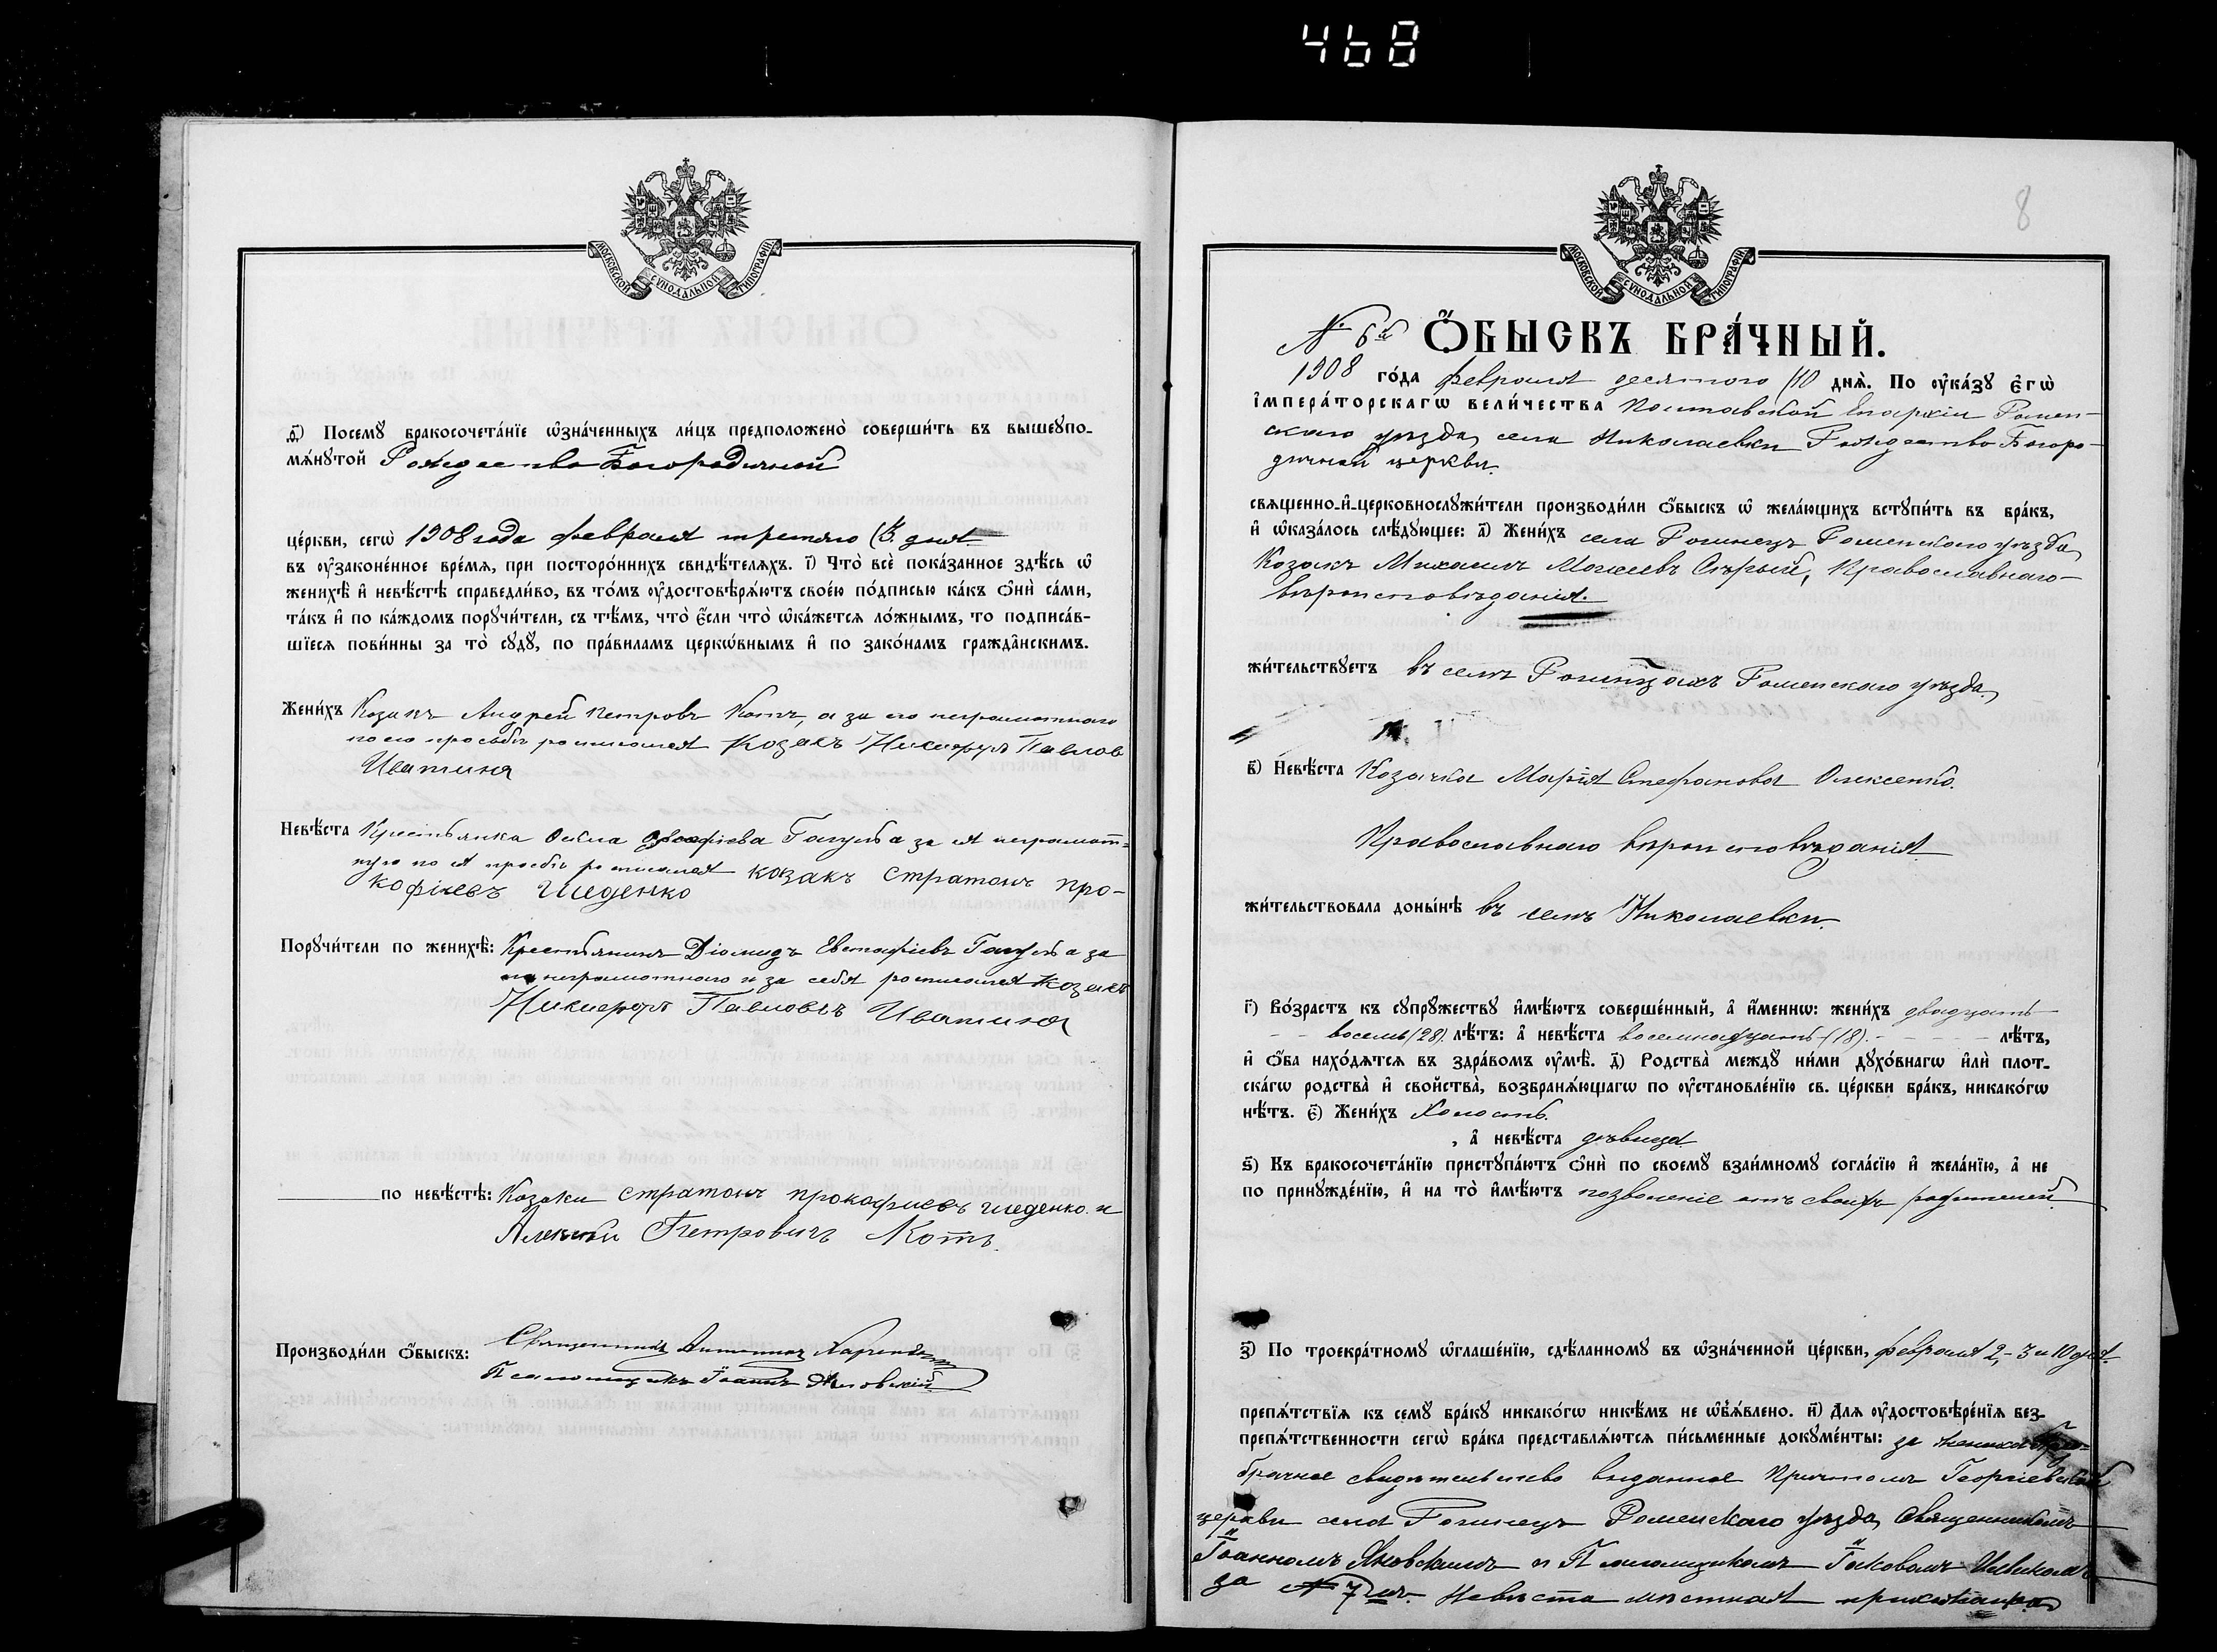 468
МОСКОВСКОЙ СѴНОДАЛЬНОЙ ТИПОГРАФІИ
ѳ҃) Посемꙋ бракосочета́нїе ѡ҆зна́ченныхъ ли́цъ предположено̀ соверши́ть въ вышеꙋпо-
мѧ́нꙋтой Рождество Богородичной
це́ркви, сегѡ̀ 1908 года февраля третяго (3 дня
въ ᲂу҆законе́нное вре́мѧ, при посторо́ннихъ свидѣ́телѧхъ. і҃) Что̀ всѐ пока́занное здѣ́сь ѡ҆
женихѣ̀ и҆ невѣ́стѣ справедли́во, въ то́мъ ᲂу҆достовѣрѧ́ютъ свое́ю по́дписью ка́къ ѻ҆нѝ са́ми,
та́къ и҆ по ка́ждомъ порꙋчи́тели, съ тѣ́мъ, что̀ є҆́сли что̀ ѡ҆ка́жетсѧ ло́жнымъ, то подписа́в-
шїесѧ пови́нны за то̀ сꙋдꙋ̀, по пра́виламъ церкѡ́внымъ и҆ по зако́намъ гражда̂нскимъ.
Жени́хъ Козакъ Андрей Петровъ Котъ, а за его неграмотнаго
по его просьбѣ росписался Козакъ Никифоръ Павлов
Иватина
Невѣ́ста Крестьянка Ѳекла Гапула за ея неграмот=
ную по ея просьбѣ росписался козакъ Стратонъ про-
кофіевъ Ищенко
Порꙋчи́тели по женихѣ̀: Крестьянинъ Діомидъ Евстафіевъ Гапула за
неграмотного и за себя росписался Козакъ
Никифоръ Павловъ Иватина
по невѣ́стѣ: Козаки стратонъ прокофиевъ и
Алексѣй Петровичъ Котъ.
Производи́ли ѻ҆́быскъ: Священникъ
Псаломщикъ Іоаннъ
8
МОСКОВСКОЙ СѴНОДАЛЬНОЙ ТИПОГРАФІИ
№ 6й Ѻ҆́БЫСКЪ БРА́ЧНЫЙ.
1908 го́да февраля десятого (10 днѧ̀. По ᲂу҆ка́зꙋ є҆гѡ̀
і҆мпера́торскагѡ вели́чества Полтавской Епархіи Ромен-
скаго уѣзда, села Николаевки Рождество-Богоро-
дичной церкви.
свѧщенно-и҆-церковнослꙋжи́тели производи́ли ѻ҆́быскъ ѡ҆ жела́ющихъ встꙋпи́ть въ бра́къ,
и҆ ѡ҆каза́лось слѣ́дꙋющее: а҃) Жени́хъ села Рогинецъ Роменскаго уѣзда,
Козакъ Михаилъ Моисеевъ Сѣрый, Православнаго
вѣроисповѣданія.
жи́тельствꙋетъ въ селѣ Рогинцахъ Роменскаго уѣзда,
в҃) Невѣ́ста Козачка Марія Стефанова Олексенко.
Православнаго вѣроисповѣданія
жи́тельствовала доны́нѣ въ селѣ Николаевки.
г҃) Во́зрастъ къ сꙋпрꙋ́жествꙋ и҆мѣ́ютъ соверше́нный, а҆ и҆́меннѡ: жени́хъ двадцать
восемь (28) лѣ́тъ: а҆ невѣ́ста восемнадцать (18). лѣ́тъ,
и҆ ѻ҆́ба нахо́дѧтсѧ въ здра́вомъ ᲂу҆мѣ̀. д҃) Родства̀ междꙋ ни́ми дꙋхо́внагѡ и҆лѝ плот-
ска́гѡ родства̀ и҆ свойства̀, возбранѧ́ющагѡ по ᲂу҆становле́нїю св. це́ркви бра́къ, никако́гѡ
нѣ́тъ. є҃) Жени́хъ Холостъ.
, а҆ невѣ́ста дѣвица.
ѕ҃) Къ бракосочета́нїю пристꙋпа́ютъ ѻ҆нѝ по своемꙋ̀ взаи́мномꙋ согла́сїю и҆ жела́нїю, а҆ не
по принꙋжде́нїю, и҆ на то̀ и҆мѣ́ютъ позволеніе отъ своихъ родителей.
з҃) По троекра́тномꙋ ѡ҆глаше́нїю, сдѣ́ланномꙋ въ ѡ҆зна́ченной це́ркви, февраля 2,- 3 и 10 дня.
препѧ́тствїѧ къ семꙋ̀ бра́кꙋ никако́гѡ никѣ́мъ не ѡ҆б̾ѧ́влено. и҃) Длѧ ᲂу҆достовѣре́нїѧ без-
препѧ́тственности сегѡ̀ бра́ка представлѧ́ютсѧ пи́сьменные докꙋме́нты: за жениха Пред-
брачное свидѣтельство выданное Причтомъ Георгіевской
церкви села Рогинецъ Роменскаго уѣзда, Священникомъ
Іоанномъ Яновскимъ и Псаломщикомъ Іаковомъ
за № 7мъ. Невѣста мѣстная прихожанка